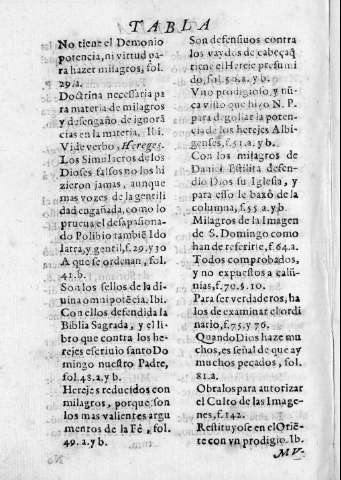 TABLA
No tiene el Demonio
potencia, ni virtud pa-
ra hazer milagros, fol.
29.a.
Doctrina necessaria pa
ra materia de milagros
y desengaño de ignorã
cias en la materia, Ibi.
Vide verbo, Hereges.
Los Simulacros de los
Dioses falsos no los hi
zieron jamas, aunque
mas vozes de la gentili
dad engañada, como lo
prueua el desapasiona-
do Polibio tambiẽ Ido
latra, y gentil, f.29. y 30
A que se ordenan, fol.
41.b.
Son los sellos de la di
uina omnipotẽcia. Ibi.
Con ellos defendida la
Biblia Sagrada, y el li
bro que contra los he-
rejes escriuio santo Do
mingo nuestro Padre,
fol.48.a.y b.
Herejes reducidos con
milagros, porque son
los mas valientes argu
mentos de la Fê, fol.
49.a.y b.
Son defensiuos contra
los vaydos de cabeça q̃
tiene el Hereje presumi
do, fol.50.a.y b.
Vno prodigioso, y nũ
ca visto que hizo N. P.
para digollar la poten-
cia de los herejes Albi
genses, f.51.a. y b.
Con los milagros de
Daniel Estilita defen-
dio Dios su Iglesia, y
para esso le baxô de la
columna, f.55.a.y b.
Milagros de la Imagen
de S. Domingo como
han de referirse, f.64.a.
Todos comprobados,
y no expuestos a calũ-
nias, f.70.§.10.
Para ser verdaderos, ha
los de examinar el ordi
nario, f.75. y 76.
Quando Dios haze mu
chos, es señal de que ay
muchos pecados, fol.
81.a.
Obralos para autorizar
el Culto de las Image-
nes, f.142.
Restituyose en el Oriẽ-
te con vn prodigio. Ib.
MV-